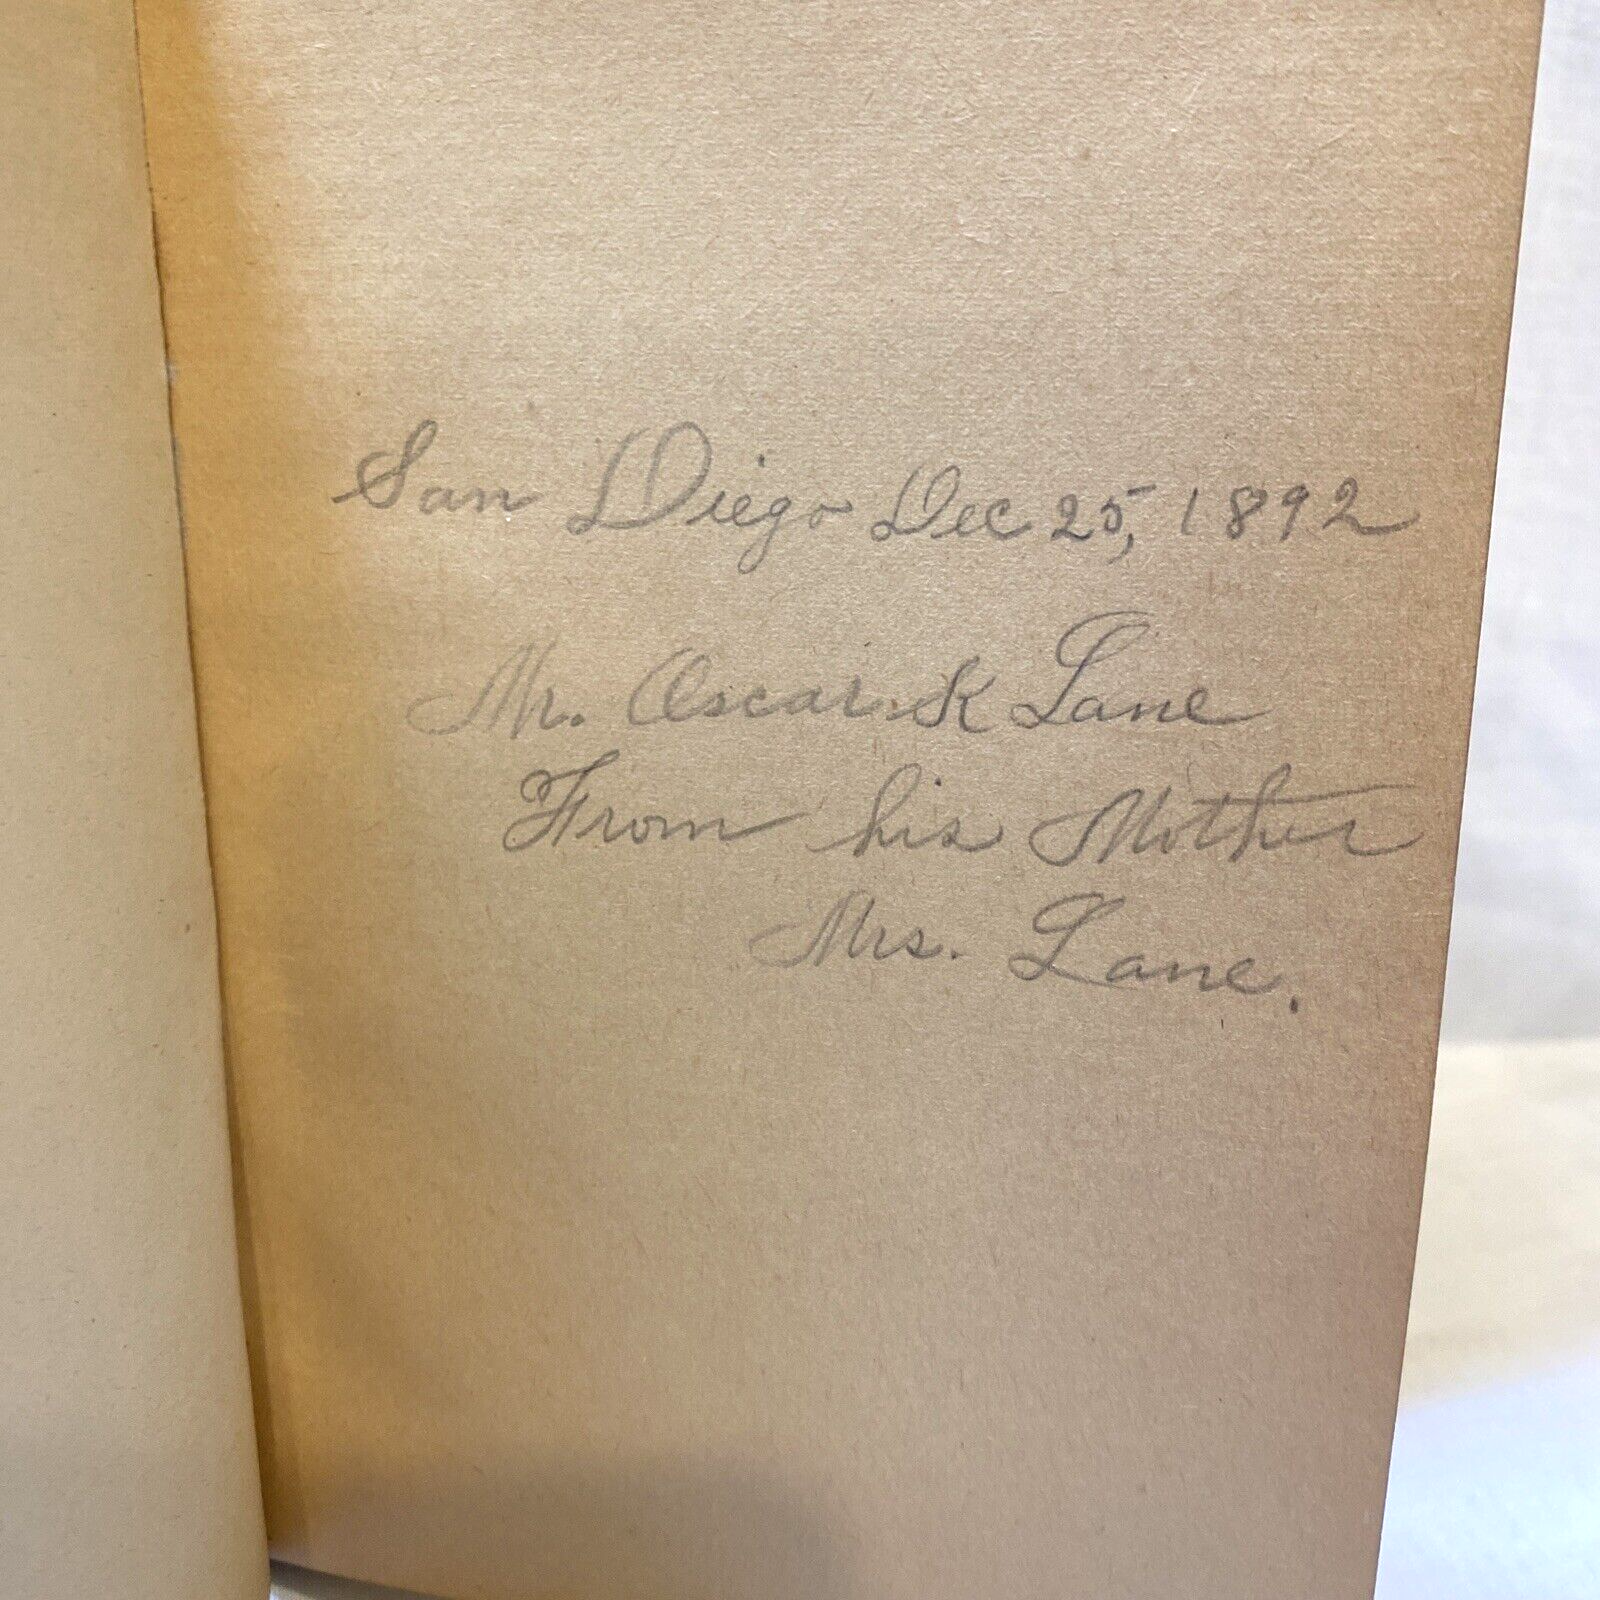 San Diego Dec 25, 1892
Mr. Oscar K Lane
From his Mother
Mrs. Lane.